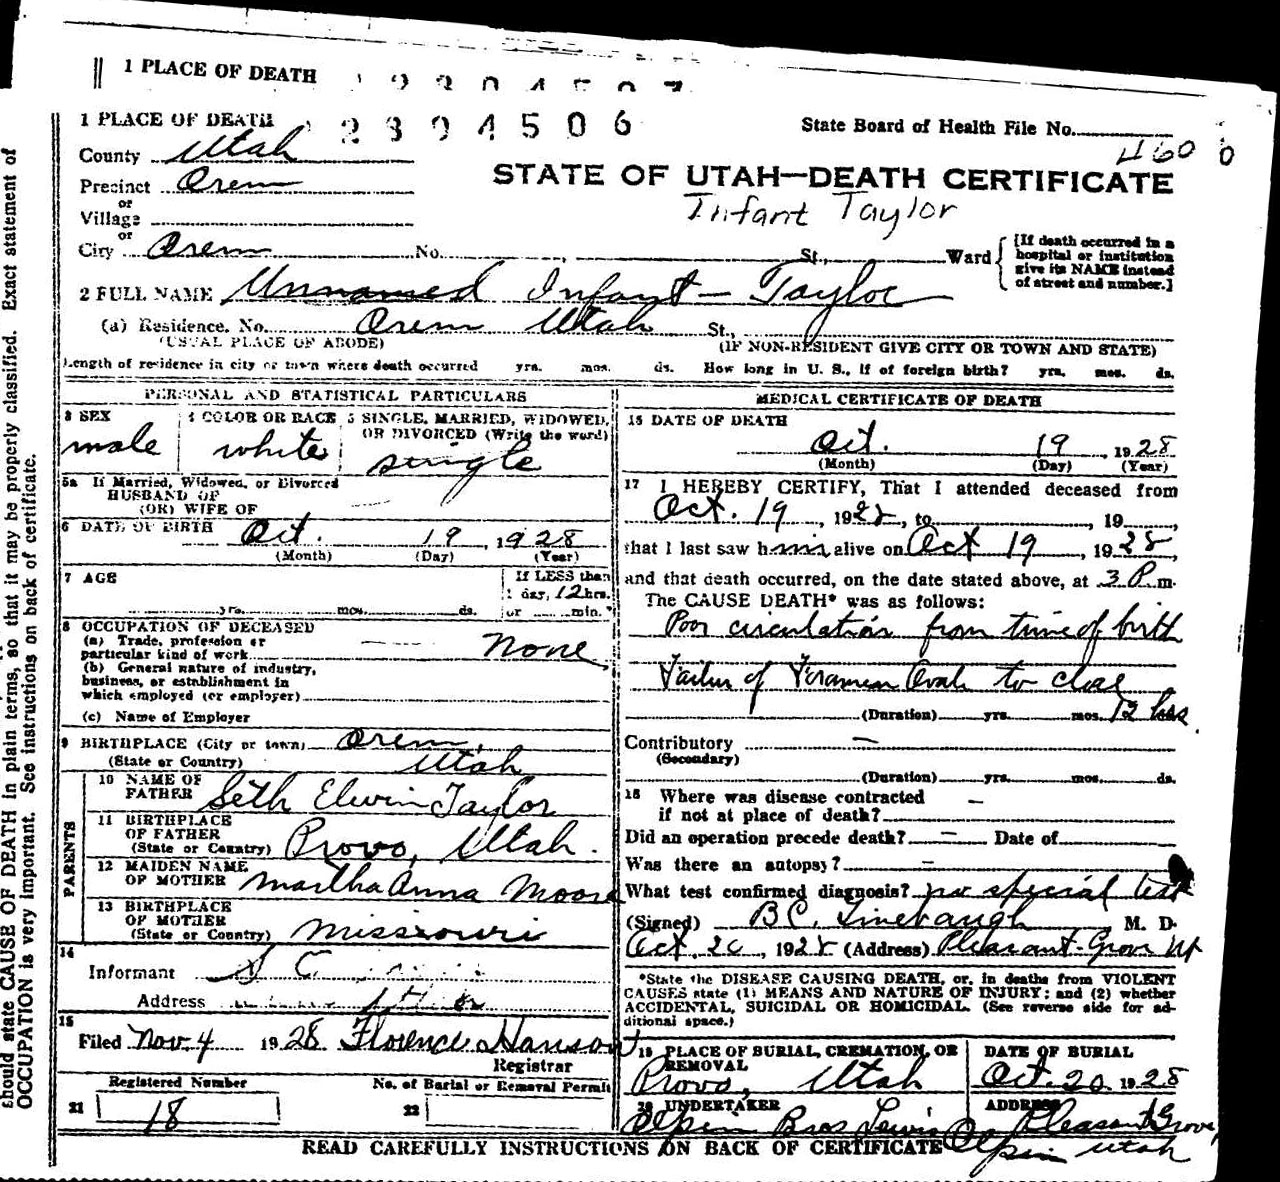 1 PLACE OF DEATH
1 PLACE OF DEATH 2394506
State Board of Health File No. 460
County Utah
STATE OF UTAH—DEATH CERTIFICATE
Precinct Orem
Infant Taylor
or
Village
or
City Orem No. St., Ward
[If death occurred in a
hospital or institution
give its NAME instead
of street and number.]
2 FULL NAME Unnamed Infant - Taylor
(a) Residence. No. Orem Utah St.,
(USUAL PLACE OF ABODE) (IF NON-RESIDENT GIVE CITY OR TOWN AND STATE)
Length of residence in city or town where death occurred yrs. mos. ds. How long in U. S., if of foreign birth? yrs. mos. ds.
PERSONAL AND STATISTICAL PARTICULARS
3 SEX
male
4 COLOR OR RACE
white
5 SINGLE, MARRIED, WIDOWED,
OR DIVORCED (Write the word)
single
5a If Married, Widowed, or Divorced
HUSBAND OF
(OR) WIFE OF
6 DATE OF BIRTH Oct. 19, 1928
(Month) (Day) (Year)
7 AGE
yrs. mos. ds.
If LESS than
1 day, 12 hrs.
or min.
8 OCCUPATION OF DECEASED
(a) Trade, profession or
particular kind of work None
(b) General nature of industry,
business, or establishment in
which employed (or employer)
(c) Name of Employer
9 BIRTHPLACE (City or town) Orem,
(State or Country) Utah
PARENTS
10 NAME OF
FATHER Seth Elwin Taylor
11 BIRTHPLACE
OF FATHER
(State or Country) Provo, Utah.
12 MAIDEN NAME
OF MOTHER Martha Anna Moore
13 BIRTHPLACE
OF MOTHER
(State or Country) Missouri
14
Informant S
Address
15
Filed Nov. 4 1928 Florence Hanson
Registrar
Registered Number
21 18
No. of Burial or Removal Permit
22
MEDICAL CERTIFICATE OF DEATH
16 DATE OF DEATH
Oct. 19, 1928
(Month) (Day) (Year)
17 I HEREBY CERTIFY, That I attended deceased from
Oct. 19, 1928, to, 19,
that I last saw him alive on Oct 19, 1928,
and that death occurred, on the date stated above, at 3 P.m.
The CAUSE DEATH* was as follows:
Poor circulation from time of birth
Failure of Foramen Ovale to close
(Duration) yrs. mos. 12 hrs
Contributory —
(Secondary)
(Duration) yrs. mos. ds.
18 Where was disease contracted
if not at place of death? —
Did an operation precede death? — Date of
Was there an autopsy? —
What test confirmed diagnosis? no special test
(Signed) B.C. Linebaugh M. D.
Oct. 20, 1928 (Address) Pleasant Grove Ut
*State the DISEASE CAUSING DEATH, or, in deaths from VIOLENT
CAUSES state (1) MEANS AND NATURE OF INJURY; and (2) whether
ACCIDENTAL, SUICIDAL OR HOMICIDAL. (See reverse side for ad-
ditional space.)
19 PLACE OF BURIAL, CREMATION, OR
REMOVAL
Provo, Utah
DATE OF BURIAL
Oct. 20, 1928
20 UNDERTAKER
Olpin Bros Lewis Olpin
ADDRESS
Pleasant Grove,
Utah
READ CAREFULLY INSTRUCTIONS ON BACK OF CERTIFICATE
should state CAUSE OF DEATH in plain terms, so that it may be properly classified. Exact statement of
OCCUPATION is very important. See instructions on back of certificate.